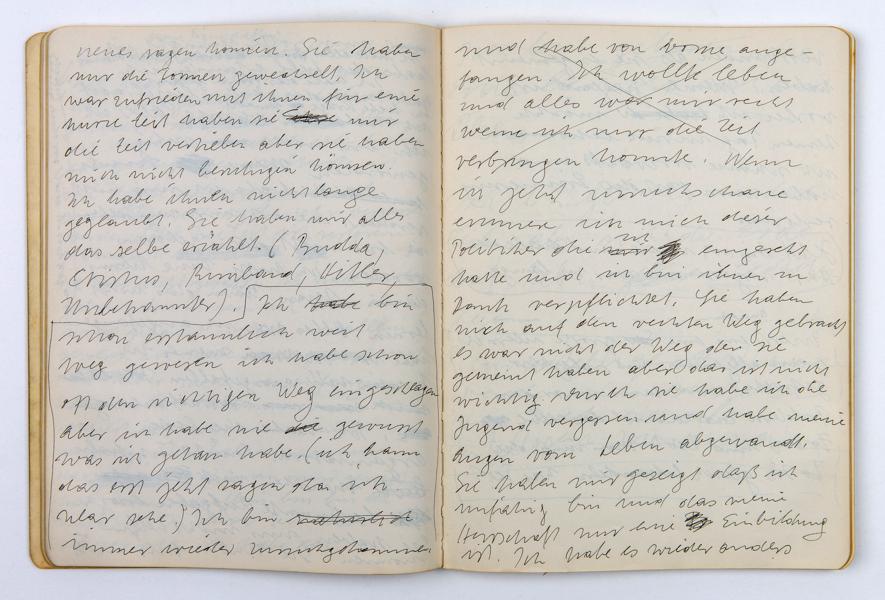 neues sagen können. Sie haben
mir die Formen gewechselt. Ich
war zufrieden mit ihnen für eine
kurze Zeit haben sie mir
die Zeit vertrieben aber sie haben
mich nicht beruhigen können.
Ich habe ihnen nicht lange
geglaubt. Sie haben mir alles
das selbe erzählt. (Budda,
Christus, Rimbaud, Hitler,
Unbekannter). Ich habe bin
schon erstaunlich weit
weg gewesen ich habe schon
oft den richtigen Weg eingeschlagen
aber ich habe nie die gewusst
was ich getan habe. (ich kann
das erst jetzt sagen da ich
klar sehe.) Ich bin
immer wieder zurückgekommen
und habe von vorne ange-
fangen. Ich wollte leben
und alles war mir recht
wenn ich nur die Zeit
verbringen konnte. Wenn
ich jetzt zurückschaue
erinnere ich mich dieser
Politiker die ich eingesetzt
hatte und ich bin ihnen zu
Dank verpflichtet. Sie haben
mich auf den rechten Weg gebracht
es war nicht der Weg den sie
gemeint haben aber das ist nicht
wichtig durch sie habe ich die
Jugend vergessen und habe meine
Augen vom Leben abgewandt.
Sie haben mir gezeigt daß ich
unfähig bin und das meine
Herrschaft nur eine Einbildung
ist. Ich habe es wieder anders